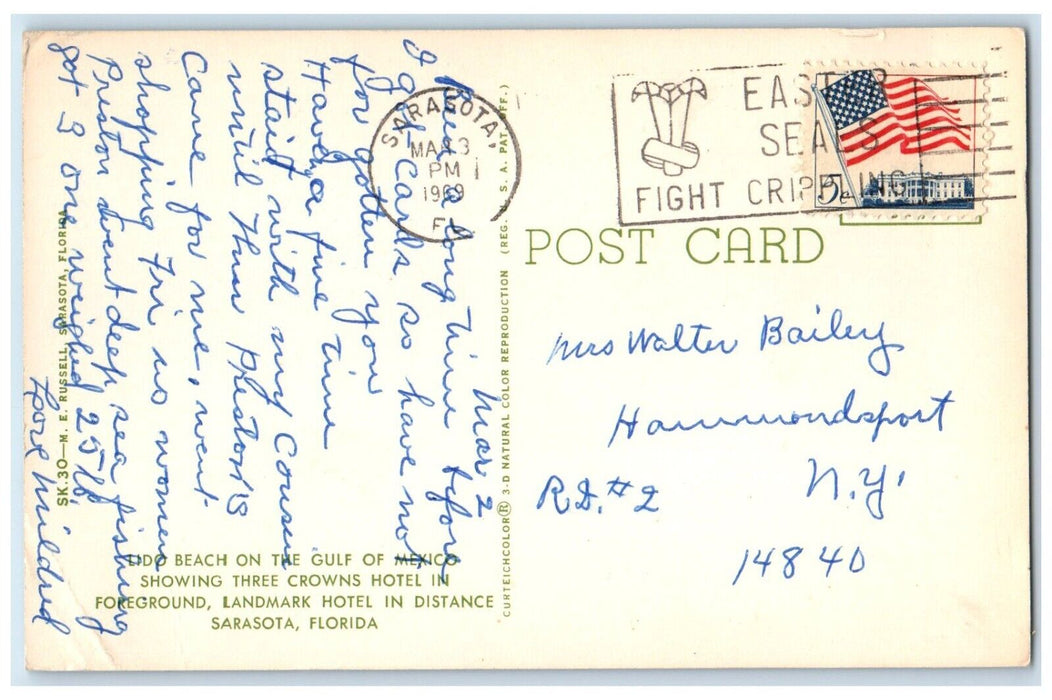 Mar 2
Been a long time before
I got cards so have not
for gotten you
Having a fine time
staid with my Cousin
until Thur Preston's
Came for me, went
shopping Fri us women
Preston went deep sea fishing
got 3 one weighed 25 lb
Love Mildred
SK.30—M. E. RUSSELL, SARASOTA, FLORIDA
LIDO BEACH ON THE GULF OF MEXICO
SHOWING THREE CROWNS HOTEL IN
FOREGROUND, LANDMARK HOTEL IN DISTANCE
SARASOTA, FLORIDA
CURTEICHCOLOR® 3-D NATURAL COLOR REPRODUCTION (REG. U. S. A. PAT. OFF.)
SARASOTA,
MAR 3
PM
1969
FL
EASTER
SEALS
FIGHT CRIPPLING
5c
POST CARD
Mrs Walter Bailey
Hammondsport
R.D. #2 N.Y.
14840